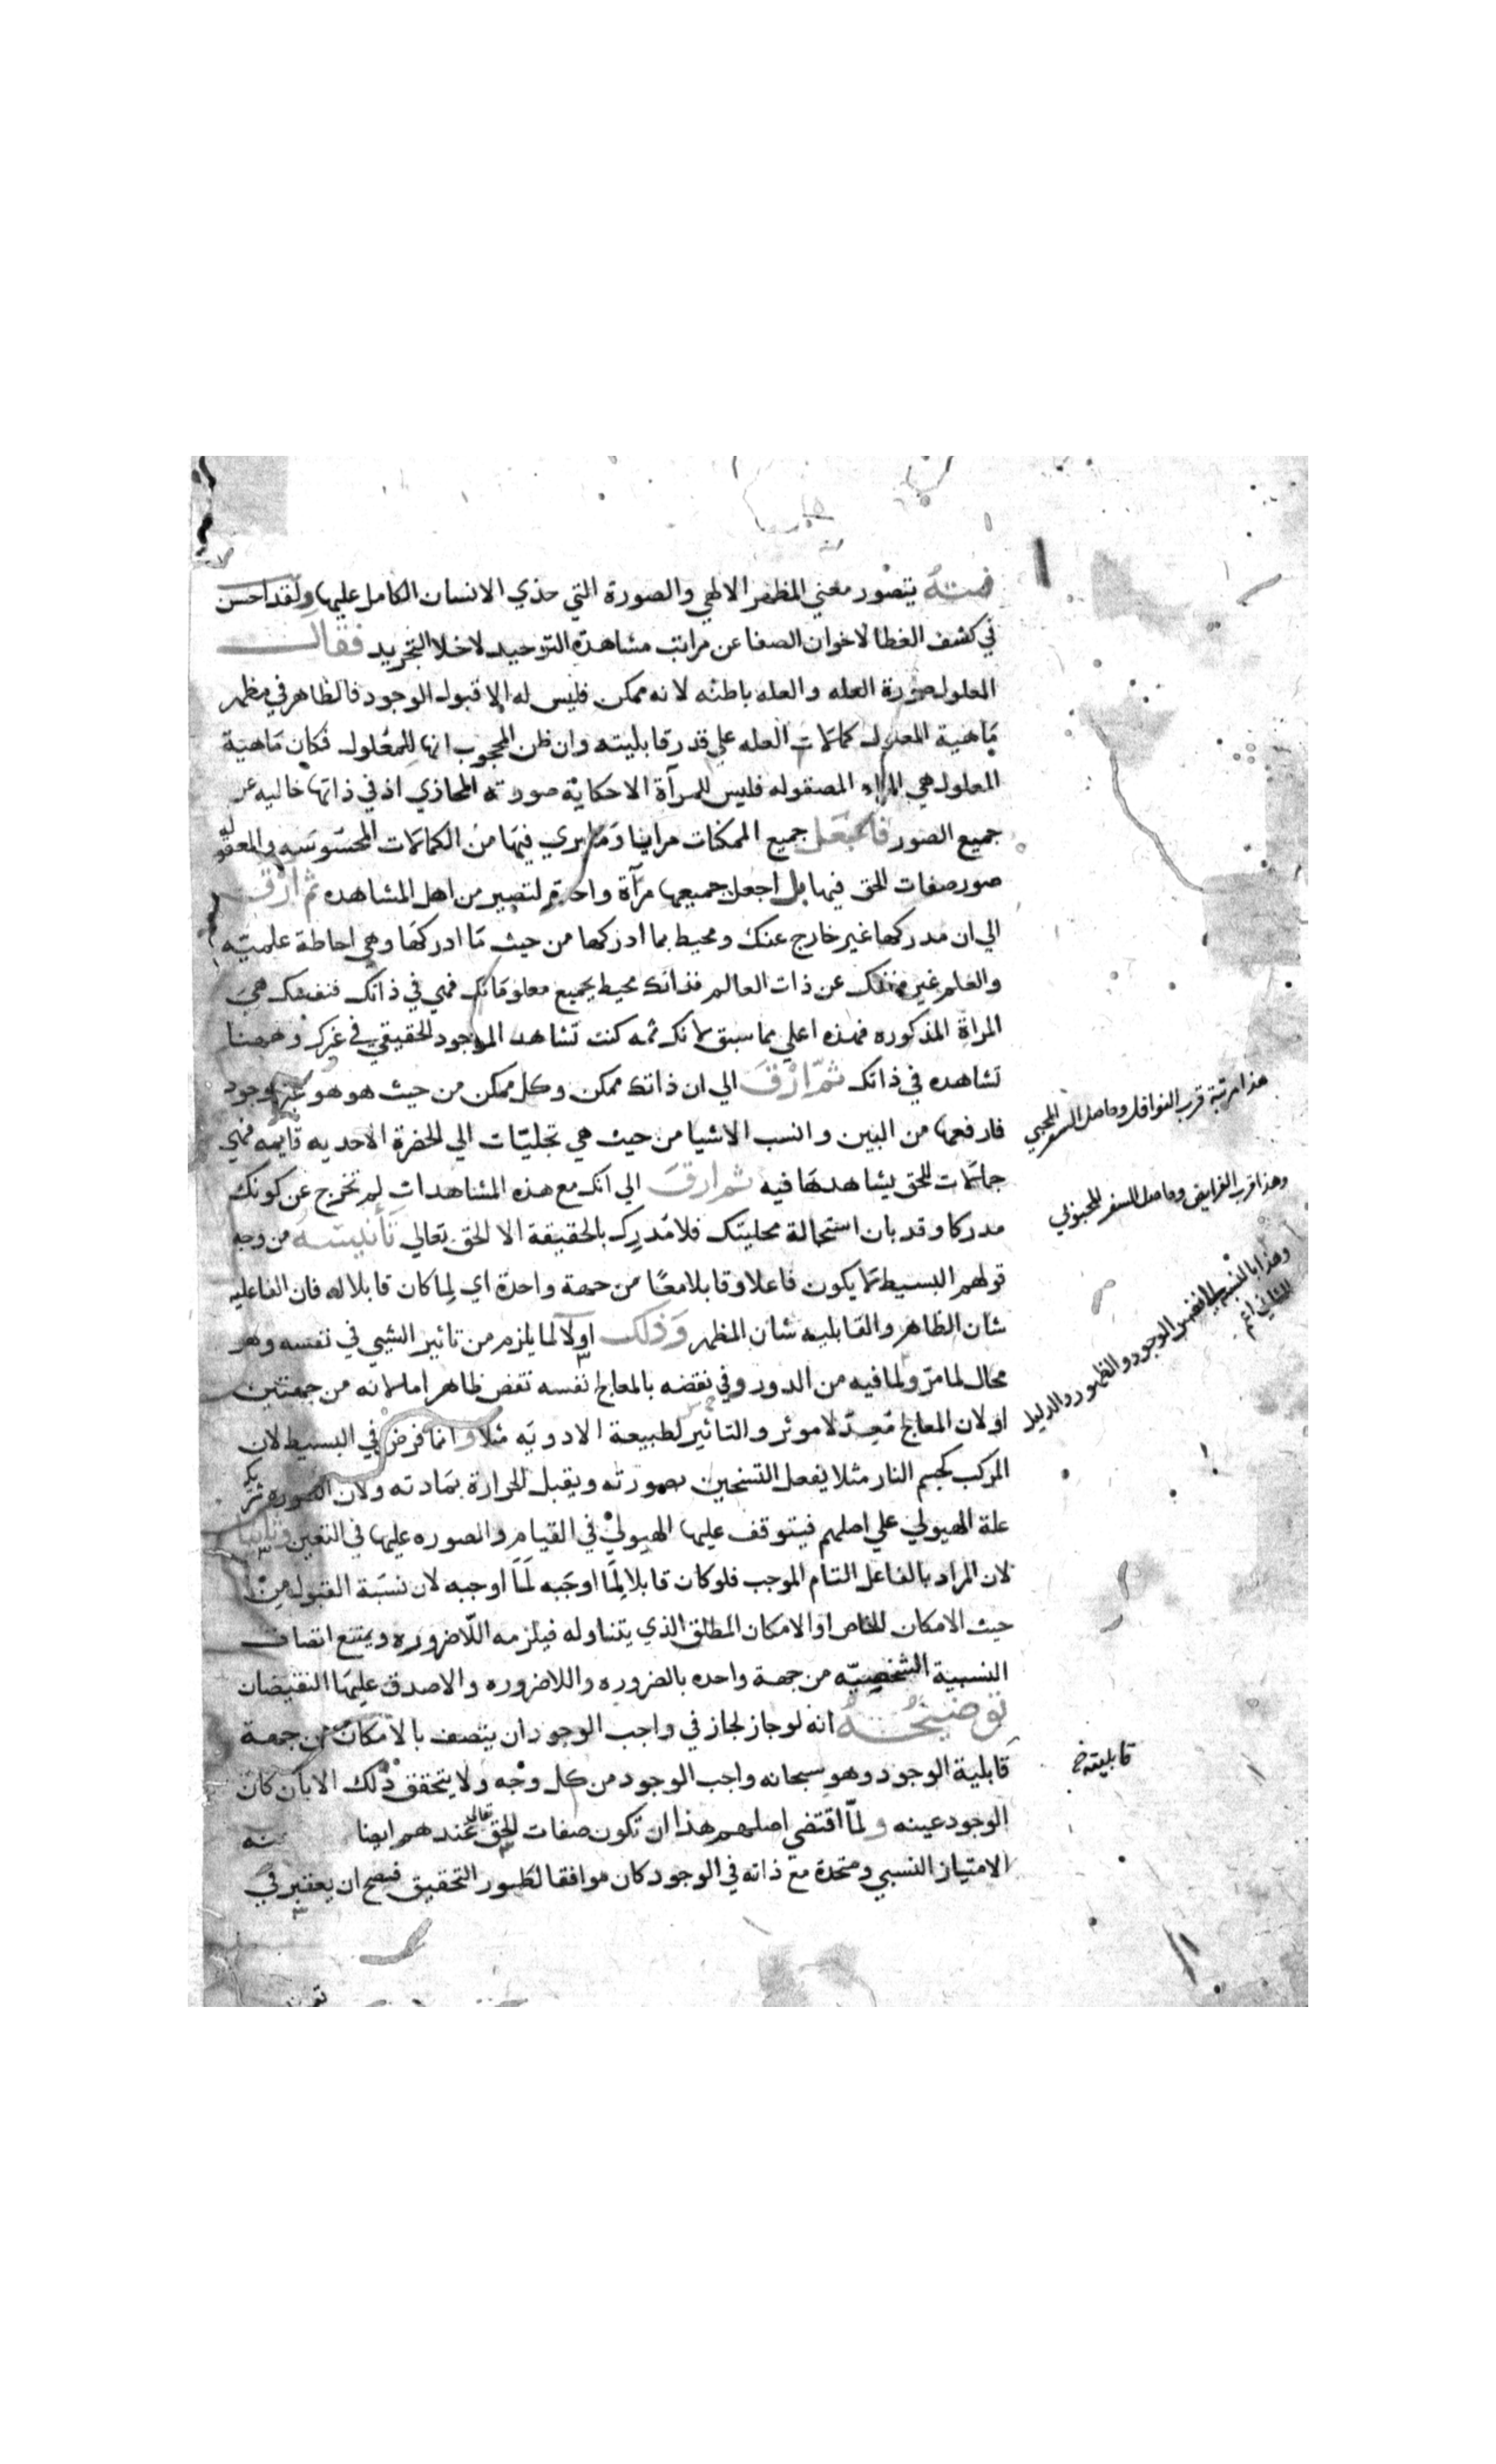 فمنه يتصور معني المظهر الالهي والصورة التي حذي الانسان الكامل عليها ولقد احسن
في كشف الغطا لاخوان الصفا عن مراتب مشاهدة التوحيد لاخلا التجريد فقال
المعلول صورة العله والعله باطنه لانه ممكن فليس له الا قبول الوجود فالظاهر في مظهر
ماهية المعلول كمالات العله علي قدر قابليته وان ظن المحجوب انها للمعلول فكان ماهية
المعلول هي المراة المصقوله فليس للمرآة الا حكاية صورته المحاذي اذ في ذاتها خاليه عن
جميع الصور فاجعل جميع الممكنات مرايا وما يري فيها من الكمالات المحسوسه والمعقوله
صور صفات الحق فيها بل اجعل جميعها مرآة واحدة لتصير من اهل المشاهده ثم ارق
الي ان مدركها غير خارج عنك ومحيط بما ادركها من حيث ما ادركها وهي احاطة علميه
والعلم غير منفك عن ذات العالم فذاتك محيط بجميع معلوماتك فهي في ذاتك فنفسك هي
المراة المذكوره فهذه اعلي مما سبق لانك ثمه كنت تشاهد الموجود الحقيقي في غيرك وههنا
تشاهده في ذاتك ثم ارق الي ان ذاتك ممكن وكل ممكن من حيث هو هو وجود
فارفعها من البين وانسب الاشيا من حيث هي تجليات الي الحضرة الاحديه قايمه فهي
جمالات للحق يشاهدها فيه ثم ارق الي انك مع هذه المشاهدات لم تخرج عن كونك
مدركا وقد بان استحالة محليتك فلا مدرك بالحقيقة الا الحق تعالي تأنيسه من وجه
قولهم البسيط لا يكون فاعلا وقابلا معا من جهة واحدة اي لما كان قابلا له فان الفاعليه
شان الظاهر والقابليه شان المظهر وذلك اولا لما يلزم من تاثير الشيي في نفسه وهو
محال لما مر ولما فيه من الدور وفي نقضه بالمعالج نفسه نقض ظاهر اما لانه من جهتين
او لان المعالج معد لا موثر والتاثير لطبيعة الادويه مثلا وانما فرض في البسيط لان
المركب كجسم النار مثلا يفعل التسخين بصورته ويقبل الحرارة بمادته ولان الصوره
علة الهيولي علي اصلهم فيتوقف عليها الهيولي في القيام والصوره عليها في التعين وثانيا
لان المراد بالفاعل التام الموجب فلو كان قابلا لما اوجبه لما اوجبه لان نسبة القبول من
حيث الامكان الخاص او الامكان المطلق الذي يتناوله فيلزمه اللاضروره ويمتنع اتصاف
النسبية الشخصيه من جهة واحده بالضروره واللاضروره والا صدق عليها النقيضان
توضيحه انه لو جاز لجاز في واجب الوجود ان يتصف بالامكان من جهة
قابلية الوجود وهو سبحانه واجب الوجود من كل وجه ولا يتحقق ذلك الا بان كان
الوجود عينه ولما اقتضي اصلهم هذا ان تكون صفات الحق تعالي عندهم ايضا
الامتياز النسبي ومتحدة مع ذاته في الوجود كان موافقا لطور التحقيق فيصح ان يعتبر في
هذا مرتبة قرب النوافل وحاصل السفر المحبي
وهذا قرب الفرايض وحاصل السفر المحبوبي
وهذا بالنسبة الي الوجود والظهور والدليل
قابليته خ